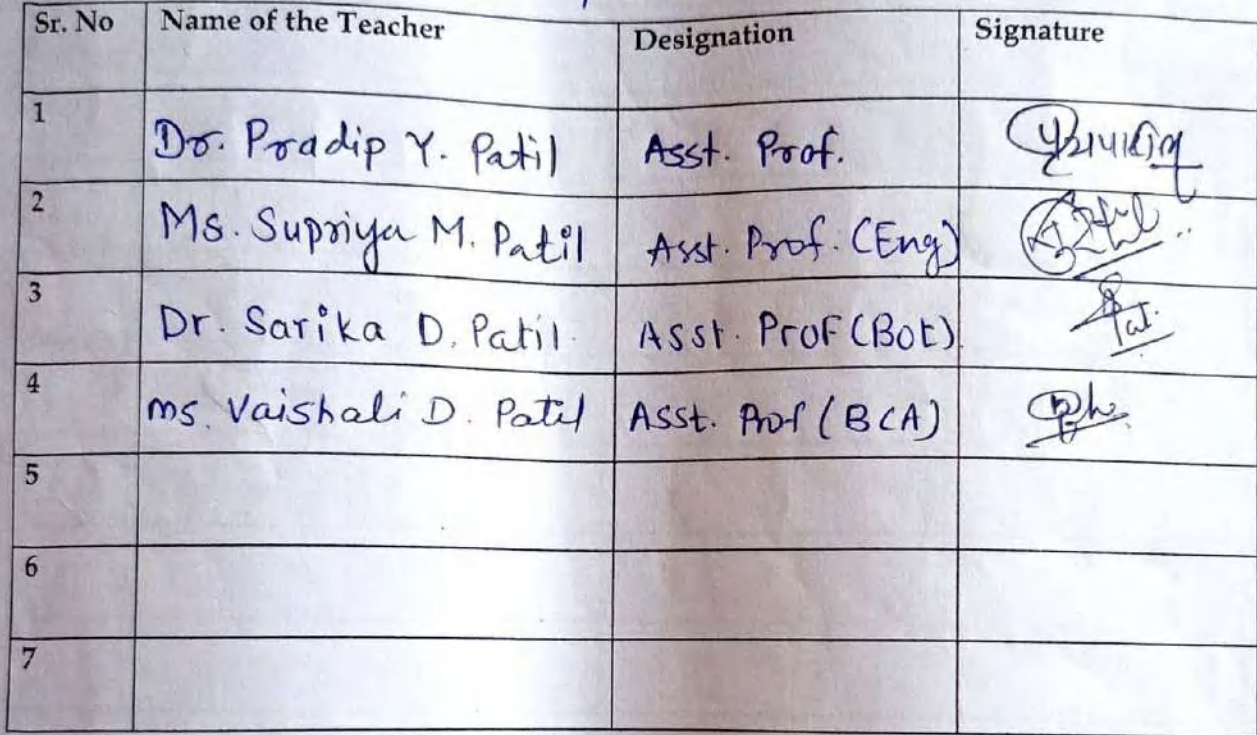 Sr. No Name of the Teacher Designation Signature
1 Dr. Pradip Y. Patil Asst. Prof.
2 Ms. Supriya M. Patil Asst. Prof. (Eng)
3 Dr. Sarika D. Patil. Asst. Prof (Bot).
4 ms. Vaishali D. Patil Asst. Prof (BCA)
5
6
7